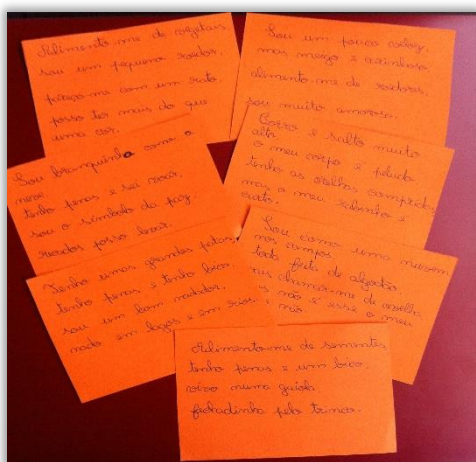 Alimento-me de vegetais
sou um pequeno roedor,
pareço-me com um rato
posso ter mais do que
uma cor.
Sou um pouco veloz,
meu meigo e carinhoso
alimento-me de roedores.
sou muito amoroso.
Sou branquinha como a
neve
tenho penas e sei voar,
sou o símbolo da paz,
recados posso levar.
Corro e salto muito
alto
o meu corpo é peludo
tenho as orelhas compridas
mas o meu rabinho é
curto.
Tenho umas grandes patas,
tenho penas e tenho bico,
sou um bom nadador,
nado em lagos e em rios.
Sou como uma nuvem
nos campos
toda feita de algodão
chamar-me de ovelha
não é esse o meu
Alimento-me de sementes
tenho penas e um bico
vivo numa gaiola
fechadinha pelo trinco.